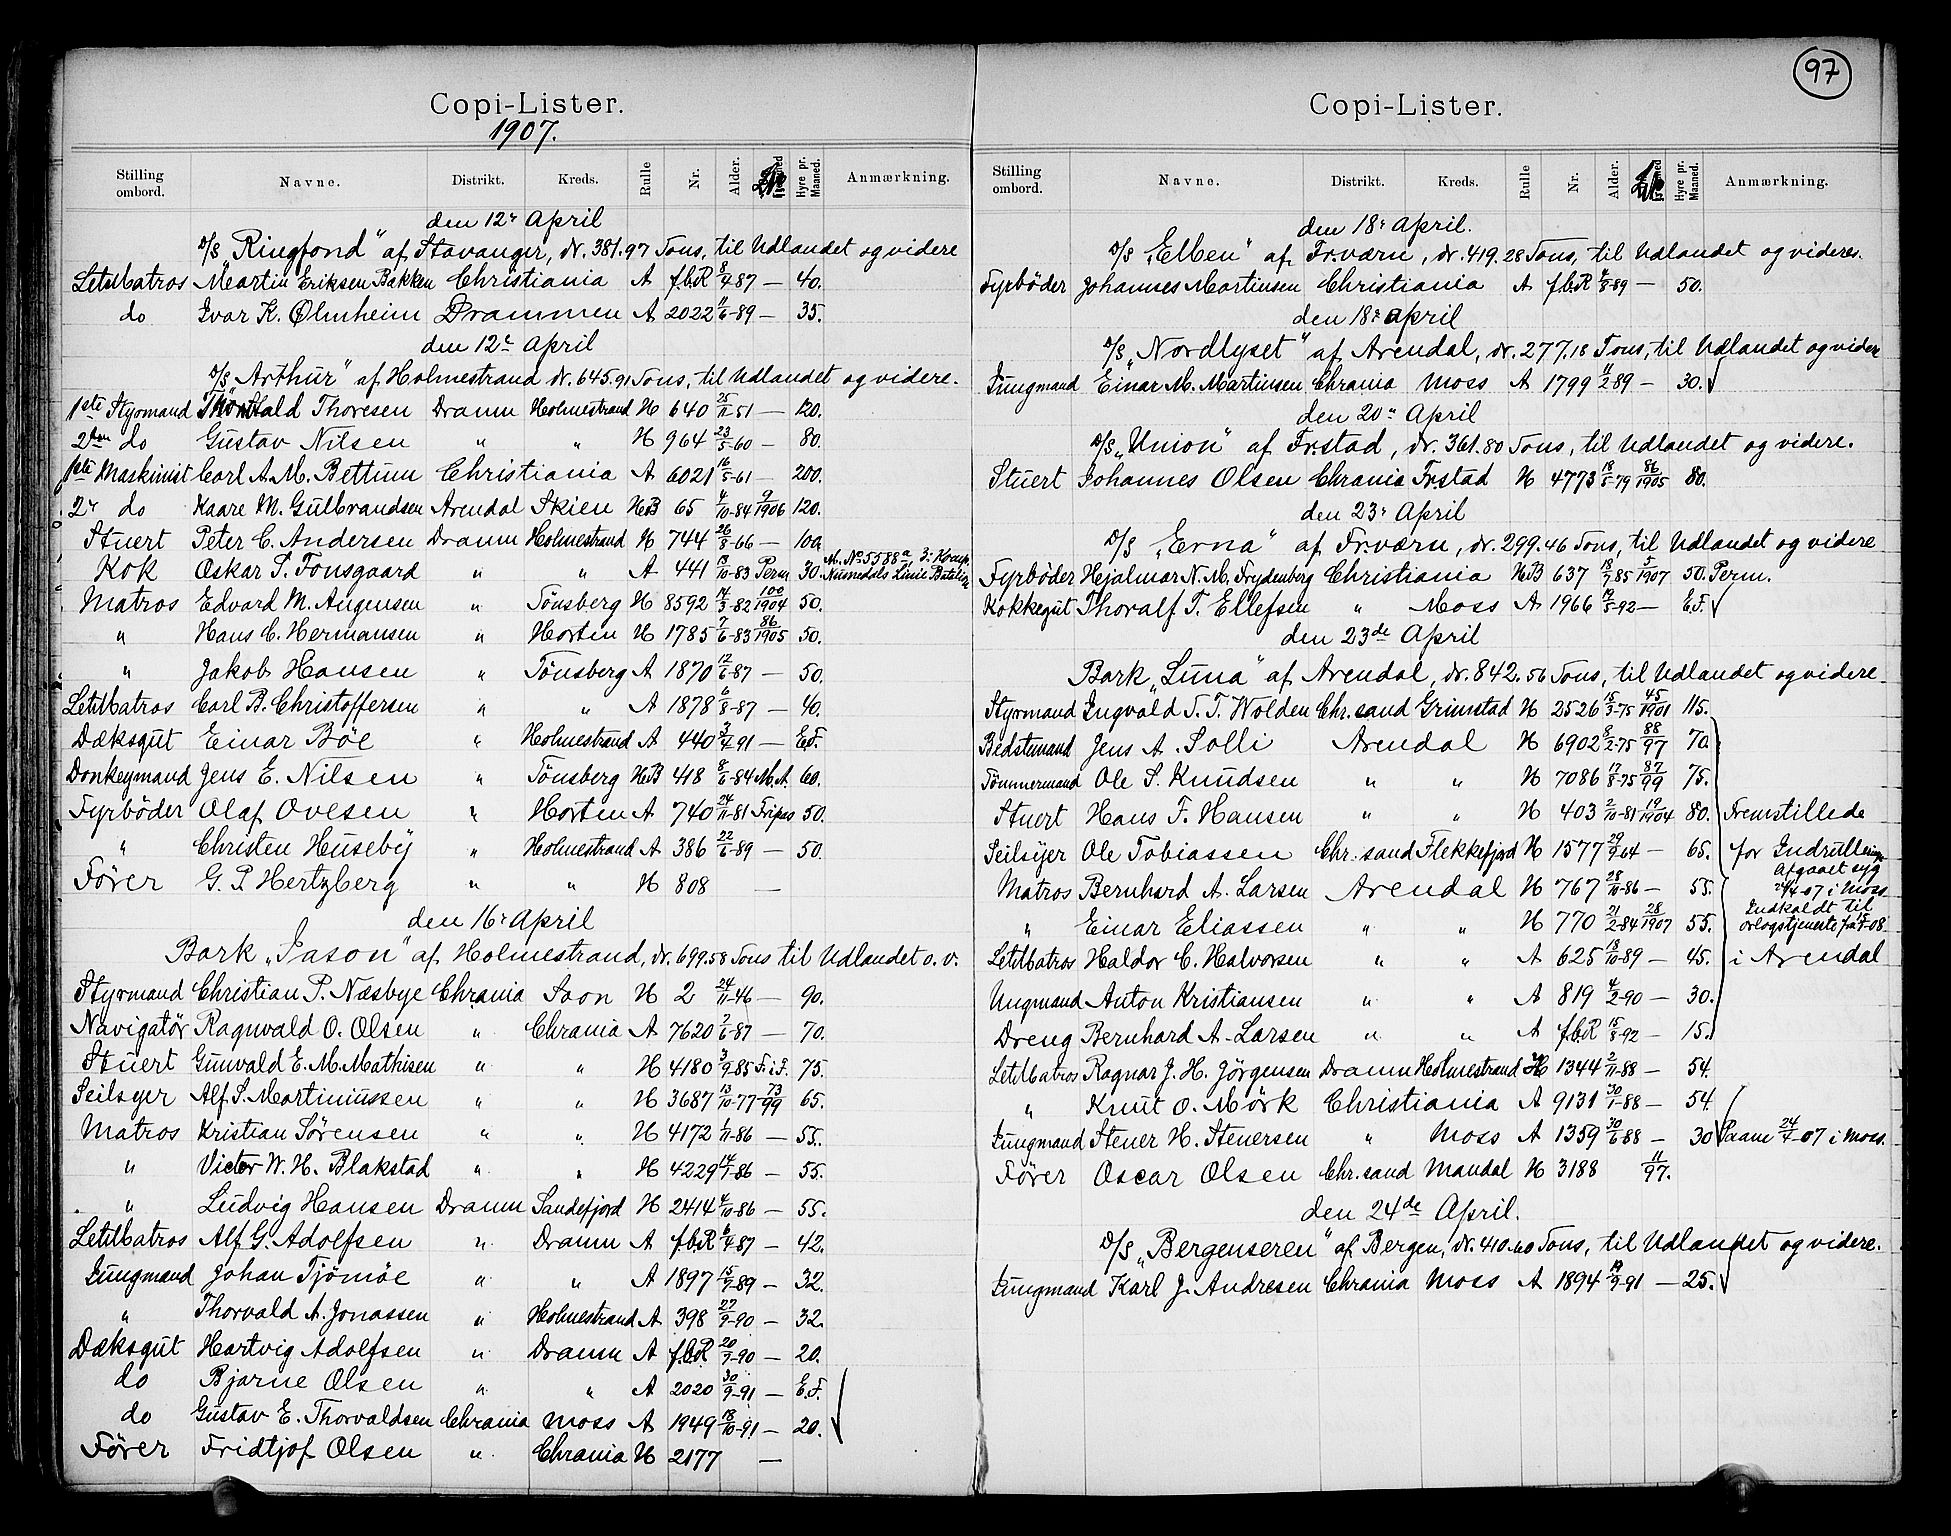 Copi-Lister.
1907.
Stilling ombord. Navne. Distrikt. Kreds. Rulle Nr. Alder. Hyre pr. Maaned. Anmærkning.
den 12te April
D/S „Ringfond" af Stavanger, dr. 381.97 Tons, til Udlandet og videre
LetMatros Martin Eriksen Bakken Christiania A f.b.R 8/4-87 — 40.
do Ivar K. Ølmheim Drammen A 2022 11/6-89 — 35.
den 12te April
D/S „Arthur" af Holmestrand dr. 645.91 Tons, til Udlandet og videre.
1ste Styrmand Thorvald Thoresen Dramm Holmestrand H 640 25/11-51 — 120.
2den do Gustav Nilsen " " H 964 23/5-60 — 80.
1ste Maskinist Carl A. M. Bettum Christiania A 6021 16/5-61 — 200.
2r do Kaare M. Gulbrandsen Arendal Skien HB 65 4/10-84 9/1906 120.
Stuert Peter C. Andersen Dramm Holmestrand H 744 26/8-66 — 100
Kok Oskar S. Fonsgaard " " A 441 13/10-83 Perm 30. M. No. 5588a 3: Komp. Numedals Linie Batalion
Matros Edvard M. Augensen " Tönsberg H 8592 14/3-82 100/1904 50.
" Hans C. Hermansen " Horten H 1785 7/6-83 86/1905 50.
" Jakob Hansen " Tönsberg A 1870 12/6-87 — 50.
LetMatros Carl B. Christoffersen " " A 1878 6/8-87 — 40.
Dæksgut Einar Böe " Holmestrand A 440 3/4-91 — E.F.
Donkeymand Jens E. Nilsen " Tönsberg HB 418 8/6-84 M.A. 60.
Fyrböder Olaf Ovesen " Horten A 740 24/11-81 Fripas 50.
" Christen Huseby " Holmestrand A 386 22/6-89 — 50.
Förer G. P. Hertzberg " " H 808 —
den 16r April
Bark „Jason" af Holmestrand, dr. 699.58 Tons til Udlandet o. v.
Styrmand Christian P. Næsbye Chrania Soon H 2 24/11-46 — 90.
Navigatör Ragnvald O. Olsen " Chrania A 7620 7/6-87 — 70.
Stuert Gunvald E. M. Mathisen " " H 4180 3/9-85 F.i.F. 75.
Seilsyer Alf S. Martiniussen " " H 3687 13/10-77 73/99 65.
Matros Kristian Sörensen " " H 4172 1/11-86 — 55.
" Victor W. H. Blakstad " " H 4229 14/1-86 — 55.
" Ludvig Hansen Dramm Sandefjord H 2414 4/10-86 — 55.
LetMatros Alf G. Adolfsen " Dramm A f.b.R 6/4-87 — 42.
Jungmand Johan Tjömöe " " A 1897 15/9-89 — 32.
" Thorvald A. Jonassen " Holmestrand A 398 27/9-90 — 32.
Dæksgut Hartvig Adolfsen " Dramm A f.b.R 20/9-90 — 20.
do Bjarne Olsen " " A 2020 30/9-91 — E.F.
do Gustav E. Thorvaldsen Chrania Moss A 1949 18/10-91 — 20.
Förer Fridtjof Olsen " Chrania H 2177 —
97
Copi-Lister.
Stilling ombord. Navne. Distrikt. Kreds. Rulle Nr. Alder. Hyre pr. Maaned. Anmærkning.
den 18r April.
D/S „Elben" af Fr.værn, dr. 419.28 Tons, til Udlandet og videre.
Fyrböder Johannes Martinsen Christiania A f.b.R 4/8-89 — 50.
den 18r April
D/S „Nordlyset" af Arendal, dr. 277.18 Tons, til Udlandet og videre
Jungmand Einar M. Martinsen Chrania Moss A 1799 11/2-89 — 30.
den 20r April
D/S „Union" af Fr.stad, dr. 361.80 Tons, til Udlandet og videre.
Stuert Johannes Olsen Chrania Frstad H 4773 18/8-79 86/1905 80.
den 23r April
D/S „Erna" af Fr.værn, dr. 299.46 Tons, til Udlandet og videre
Fyrböder Hejalmar N. M. Frydenberg Christiania HB 637 18/7-85 5/1907 50. Perm.
Kokkegut Thoralf T. Ellefsen " Moss A 1966 19/8-92 — E.F.
den 23de April
Bark „Luna" af Arendal, dr. 842.56 Tons, til Udlandet og videre
Styrmand Ingvald S. T. Wolden Chr.sand Grimstad H 2526 15/3-75 45/1901 115.
Bedstemand Jens A. Solli Arendal H 6902 8/2-75 88/97 70.
Tömmermand Ole S. Knudsen " " H 7086 17/8-75 87/99 75.
Stuert Hans F. Hansen " " H 403 2/10-81 19/1904 80. Fremstillede
Seilsyer Ole Tobiassen Chr.sand Flekkefjord H 1577 29/9-64 — 65. for Indrullering
Afgaaet syg
Matros Bernhard A. Larsen Arendal H 767 28/10-86 — 55. 24/4-07 i Moss
" Einar Eliassen " " H 770 21/2-84 28/1907 55. Indkaldt til orlogstjeneste fra 15/1-08.
LetMatros Haldor C. Halvorsen " " A 625 18/10-89 — 45. i Arendal
Ungmand Anton Kristiansen " " A 819 4/2-90 — 30.
Dreng Bernhard A. Larsen " " A f.b.R 15/8-92 — 15.
LetMatros Ragnar J. H. Jörgensen Dramm Holmestrand H 1344 2/11-88 — 54.
" Knut O. Mörk Christiania A 9131 30/1-88 — 54.
Jungmand Stener H. Stenersen " Moss A 1359 30/6-88 — 30 Paam 24/4-07 i Moss.
Förer Oscar Olsen Chr.sand Mandal H 3188 11/97.
den 24de April.
D/S „Bergenseren" af Bergen, dr. 410.60 Tons, til Udlandet og videre.
Jungmand Karl J. Andresen Chrania Moss A 1894 19/9-91 — 25.